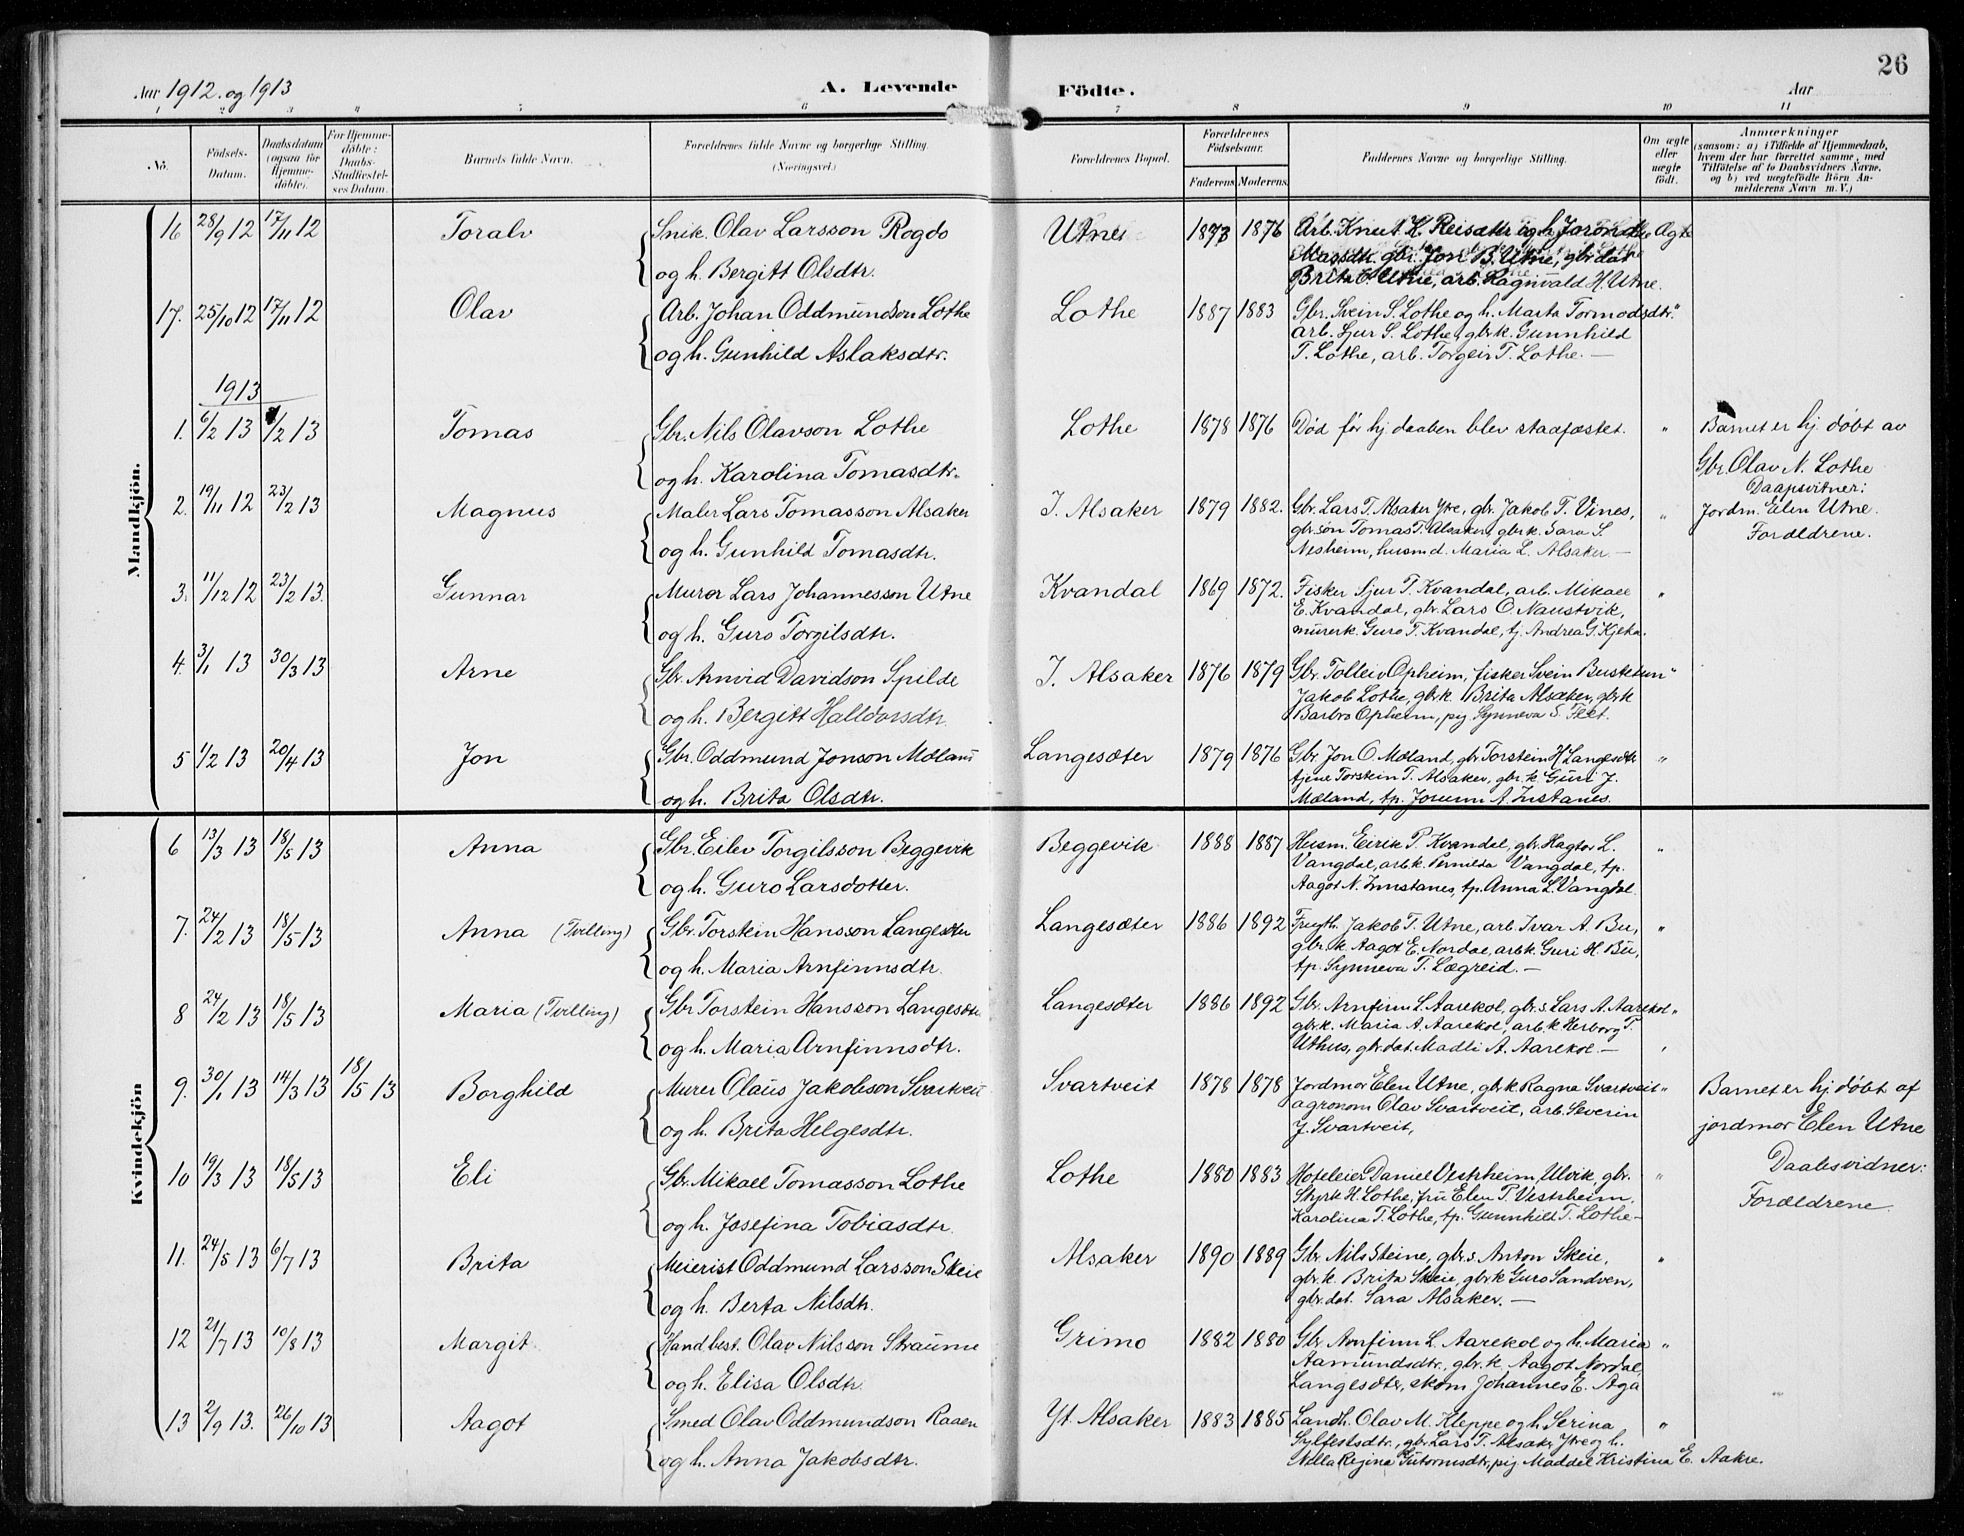 26
Aar 1912 og 1913
A. Levende Födte.
Aar
1 2 3 4 5 6 7 8 9 10 11
No.
Födsels-Datum.
Daabsdatum (ogsaa for Hjemmedöbte).
For Hjemmedöbte: Daabs-Stadfæstelses Datum.
Barnets fulde Navn.
Forældrenes fulde Navne og borgerlige Stilling. (Næringsvei.)
Forældrenes Bopæl.
Forældrenes Födselsaar.
Faderens Moderens
Faddernes Navne og borgerlige Stilling.
Om ægte eller uægte födt.
Anmærkninger
(saasom: a) i Tilfælde af Hjemmedaab, hvem der har forrettet samme, med Tilföielse af to Daabsvidners Navne, og b) ved uægtefödte Börn Anmelderens Navn m. V.)
Mandkjön.
16 28/9 12 17/11 12 Toralv Snik. Olav Larsson Rogdo Utne 1873 1876 Arb. Knut K. Reisæter og h. Jorond Ægte
og h. Bergitt Olsdtr. gbr. Jon B. Utne, gbr.dat
Brita O. Utne, arb. Ragnvald H. Utne.
17. 25/10 12 17/11 12 Olav Arb. Johan Oddmundson Lothe Lothe 1887 1883 Gbr. Svein S. Lothe og h. Marta Tormodsdtr. "
arb. Sjur S. Lothe, gbrk. Gunnhild
og h. Gunhild Aslaksdtr. T. Lothe, arb. Torgeir T. Lothe. —
1913
1. 6/2 13 /2 13 Tomas Gbr. Nils Olavson Lothe Lothe 1878 1876 Död för hj. daaben blev stadfæstet. " Barnet er hj. döbt av
og h. Karolina Tomasdtr. Gbr. Olav N. Lothe
Daapsvitner:
2. 19/11 12 23/2 13 Magnus Maler Lars Tomasson Alsaker I. Alsaker 1879 1882. Gbr. Lars T. Alsaker Ytre, gbr. Jakob T. Vines, " Jordm. Elen Utne.
gbr. sön Tomas T. Alsaker, gbrk. Sara S. Forældrene.
og h. Gunhild Tomasdtr. Nesheim, husmd. Maria L. Alsaker —
3. 11/12 12 23/2 13. Gunnar Murer Lars Johannesson Utne Kvandal 1869 1872. Fisker Sjur T. Kvandal, arb. Mikael "
E. Kvandal, gbr. Lars O. Naustvik,
og h. Guro Torgilsdtr. murerk. Guro T. Kvandal, tj. Andrea G.
4. 3/1 13 30/3 13 Arne Gbr. Arnvid Davidson Spilde I. Alsaker 1876 1879 Gbr. Tolleiv Opheim, fisker Svein Bustetun "
Jakob Lothe, gbrk. Brita Alsaker, gbrk
og h. Bergitt Halldorsdtr. Barbro Opheim, pig Synneva S.
5 1/2 13 20/4 13 Jon Gbr. Oddmund Jonson Mæland Langesæter 1879 1876 Gbr. Jon O. Mæland, gbr. Torstein H. Langesætr "
tjene Torstein T. Alsaker, gbr.k. Guri J.
og h. Brita Olsdtr. Mæland, tp. Jorunn A. Instanes.
Kvindekjön
6 13/3 13 18/5 13 Anna Gbr. Eilev Torgilsson Beggevik Beggevik 1888 1887 Husm. Eirik P. Kvandal, gbr. Hagtor L. "
Vangdal, arbk. Pernilda Vangdal, tp.
og h. Guro Larsdotter. Aagot N. Innstanes, tp. Anna L. Vangdal
7. 24/2 13 18/5 13 Anna (Tvilling) Gbr. Torstein Hansson Langesæter Langesæter 1886 1892 Jakob T. Utne, arb. Ivar A. Bu, "
gbr.k. Aagot E. Nordal arbk Guri H. Bu,
og h. Maria Arnfinnsdtr. tp. Synneva T. Lægreid. —
8 24/2 13 18/5 13 Maria (Tvilling) Gbr Torstein Hansson Langesæter Langesæter 1886 1892 Gbr. Arnfinn L. Aarekol, gbr.s. Lars A. Aarekol "
gbr.k. Maria A. Aarekol, arb.k. Herborg T.
og h. Maria Arnfinnsdtr. Uthus, gbr.dat. Madli A. Aarekol. —
9. 30/1 13 14/3 13 18/5 13 Borghild Murer Olaus Jakobson Svartveit Svartveit 1878 1878 Jordmor Elen Utne, gbr.k Ragna Svartveit " Barnet er hj. döbt af
agronom Olav Svartveit, arb. Severin jordmor Elen Utne
og h. Brita Helgesdtr. J. Svartveit,
10 19/3 13 18/5 13 Eli Gbr. Mikael Tomasson Lothe Lothe 1880 1883 Hoteleier Daniel Vestrheim, Ulvik, gbr. " Daabsvidner:
Styrk H. Lothe, fru Elen P. Vestrheim, Forældrene
og h. Josefina Tobiasdtr. Karolina T. Lothe, tp. Gunnhild T. Lothe —
11. 24/5 13 6/7 13 Brita Meierist Oddmund Larsson Skeie Alsaker 1890 1889 Gbr. Nils Steine, gbr.s. Anton Skeie, "
gbr.k. Brita Skeie, gbrk Guro Sandven,
og h. Berta Nilsdtr. gbr.dat. Sara Alsaker. —
12 21/7 13 10/8 13 Margit Handbest. Olav Nilsson Straume Grimo 1882 1880 Gbr Arnfinn L. Aarekol og h. Maria "
Aamundsdtr., gbr.k. Aagot Nordal,
og h. Elisa Olsdtr Langesæter, skom. Johannes E. Aga
13 2/9 13. 26/10 13 Aagot Smed Olav Oddmundson Raaen Yt. Alsaker 1883 1885 Landh. Olav M. Kleppe og h. Serina "
Sylfestsdtr., gbr. Lars T. Alsaker Ytre og h.
og h. Anna Jakobsdtr. Regina Gutormsdtr, pig Maddel Kristina E. Aakre.